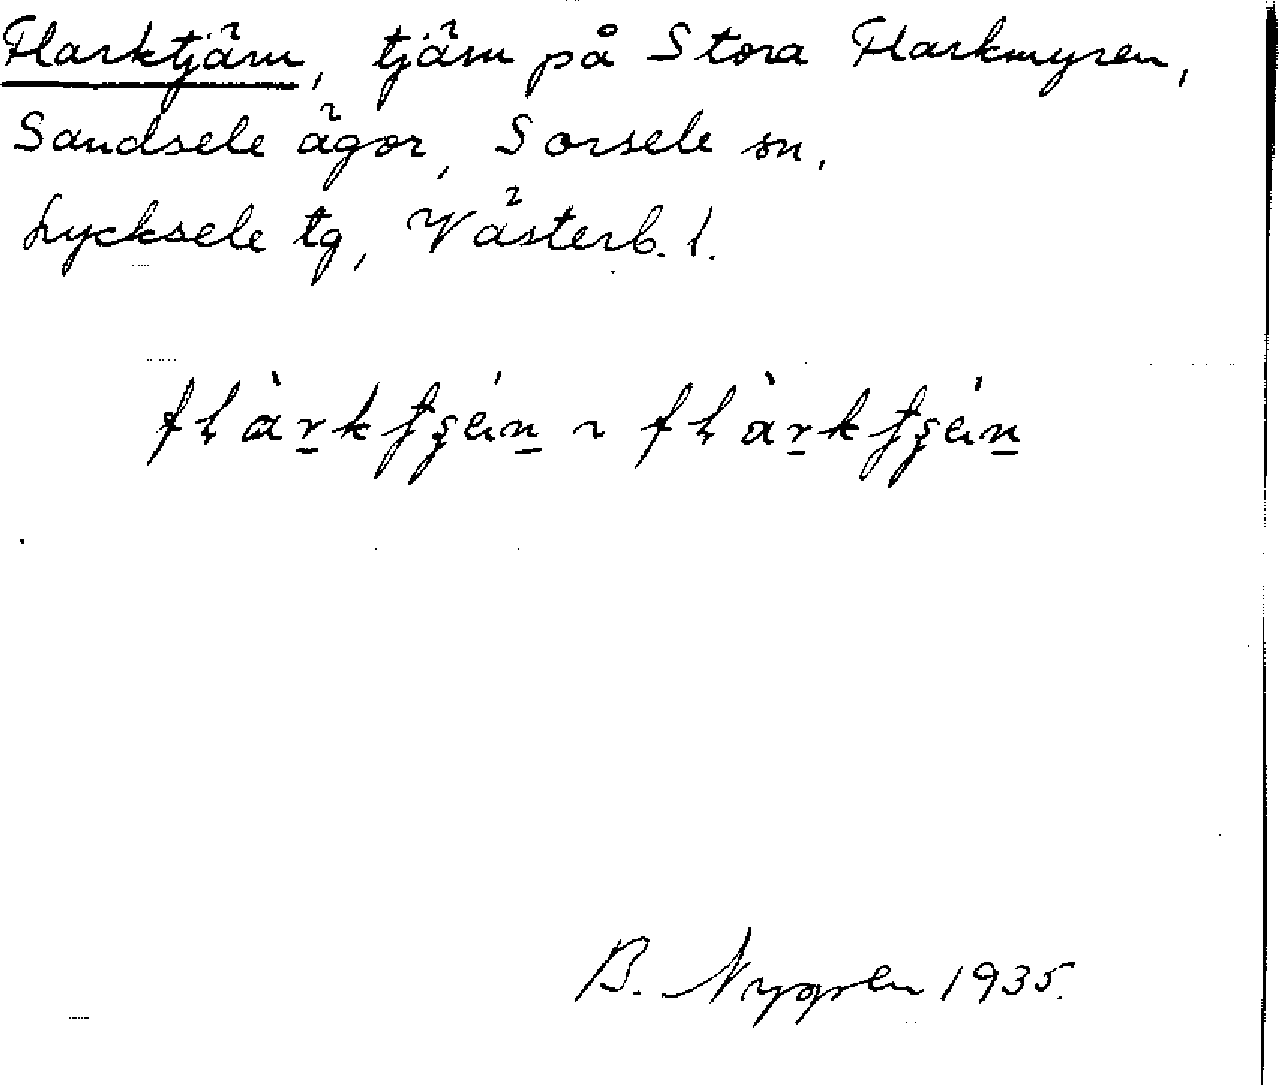 Flarktjärn, tjärn på Stora Flarkmyren,
Sandsele ägor, Sorsele sn.
Lycksele tg, Västerb. l.
B. Nygren 1935.